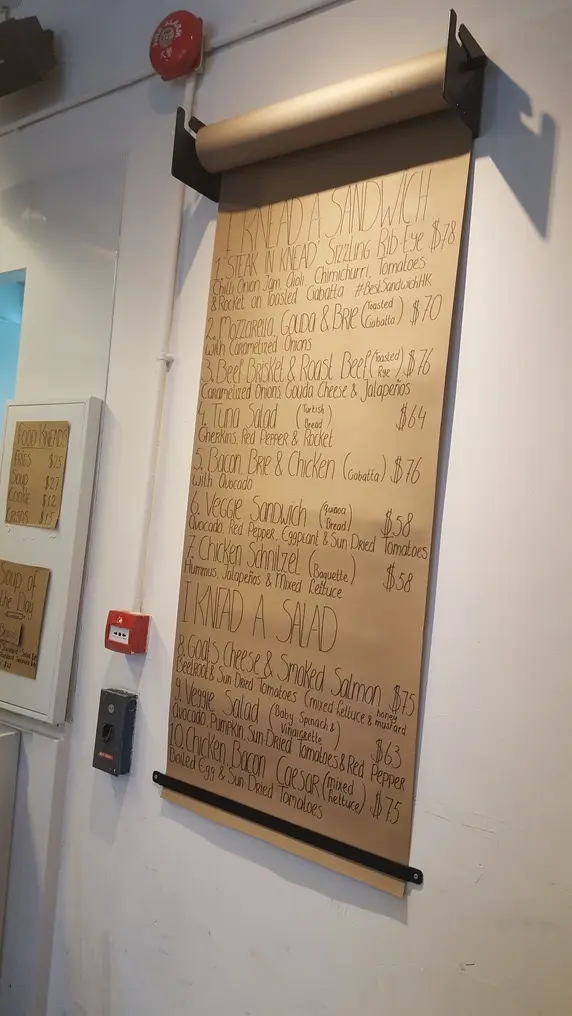 FIRE ALARM
I KNEAD A SANDWICH
1. 'STEAK IN KNEAD' SIZZLING RIB-EYE $78
Chilli Onion Jam Aioli, Chimichurri, Tomatoes
& Rocket on Toasted Ciabatta #BestSandwichHK
2. Mozzarella, Gouda & Brie (Toasted Ciabatta) $70
with Caramelized Onions
3. Beef Brisket & Roast Beef (Toasted Rye) $76
Caramelized Onions Gouda Cheese & Jalapeños
4. Tuna Salad (Turkish Bread) $64
Gherkins, Red Pepper & Rocket
5. Bacon, Brie & Chicken (Ciabatta) $76
with Avocado
6. Veggie Sandwich (Quinoa Bread) $58
Avocado, Red Pepper, Eggplant & Sun Dried Tomatoes
7. Chicken Schnitzel (Baguette) $58
Hummus, Jalapeños & Mixed Lettuce
I KNEAD A SALAD
8. Goats Cheese & Smoked Salmon $75
Beetroot & Sun-Dried Tomatoes (mixed lettuce & honey mustard
9. Veggie Salad (Baby Spinach & Vinaigrette) $63
Avocado, Pumpkin, Sun-Dried Tomatoes & Red Pepper
10. Chicken, Bacon Caesar (mixed lettuce) $75
Boiled Egg & Sun-Dried Tomatoes
FOOD KNEADS
FRIES $25
Soup $27
Cookie $12
Crisps $15
Soup of
the Day